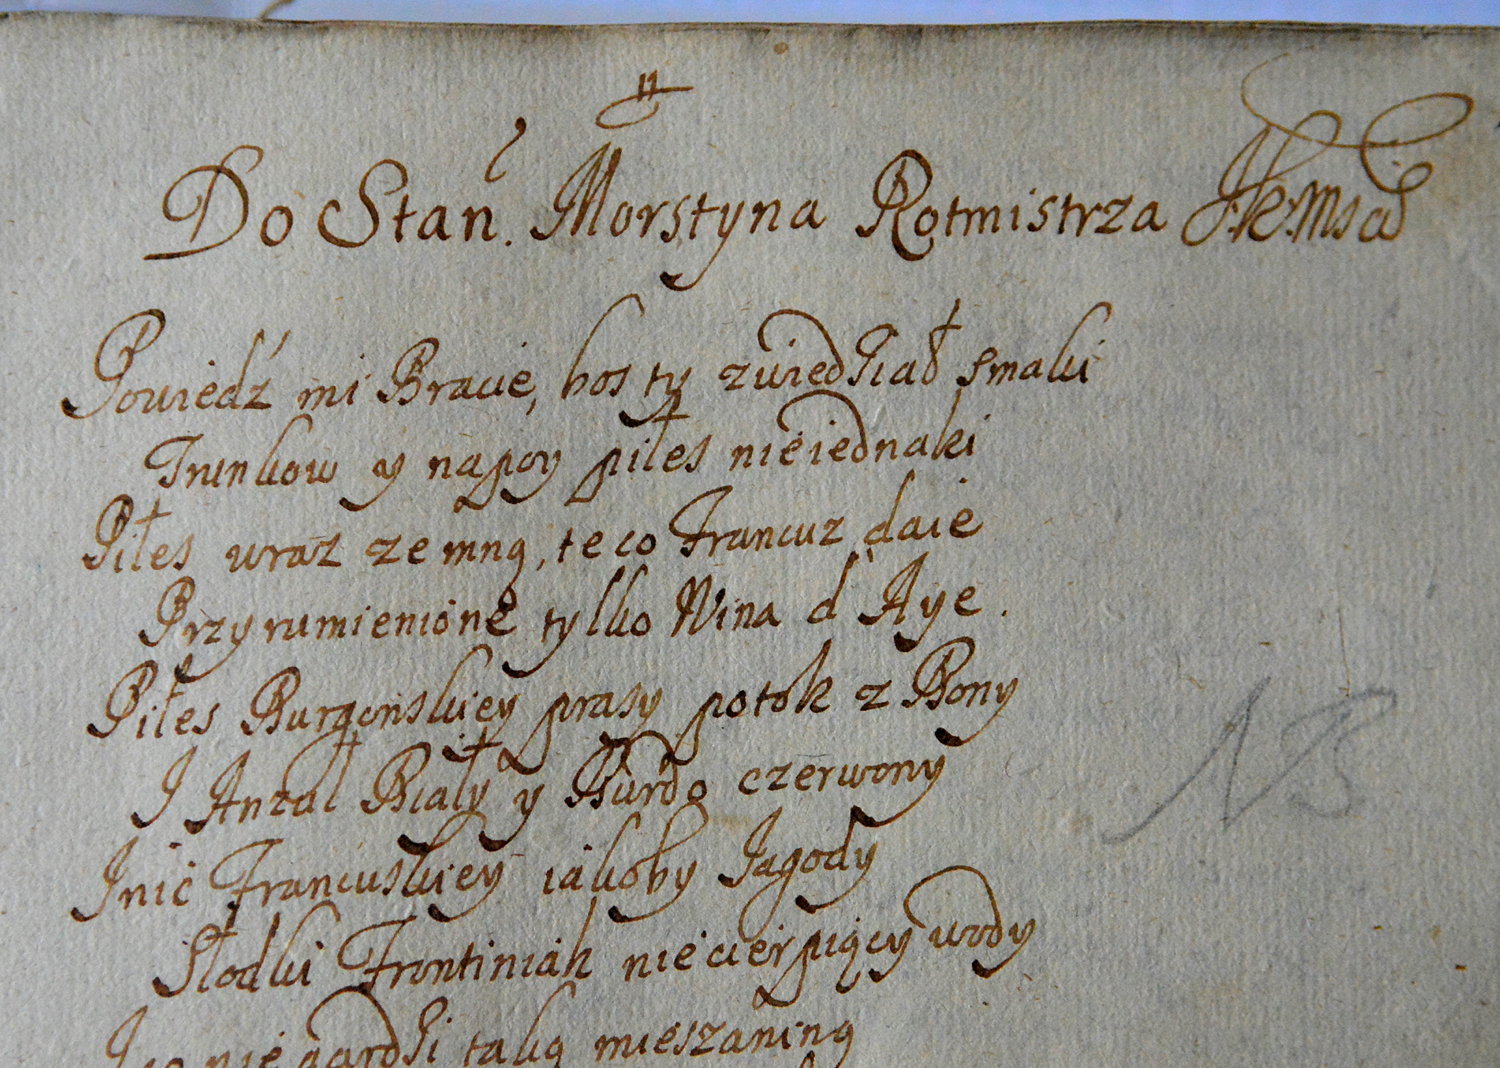 Do Stan. Morstyna Rotmistrza J.K.Msci
Powiedź mi Bracie, bos ty zwiedział smaki
Trunkow y napoy piłes nieiednaki
Piłes wraz ze mną, te co Francuz daie
Przyrumienione tylko Wina d'Aye.
Piłes Burgonskiey prasy potok z Bony
I Anzał Biały y Burdo czerwony
I nic Francuskiey iakoby Jagody
Słodki Frontiniak niecierpiący wody
I co nie gardzi taką mieszaniną
NB